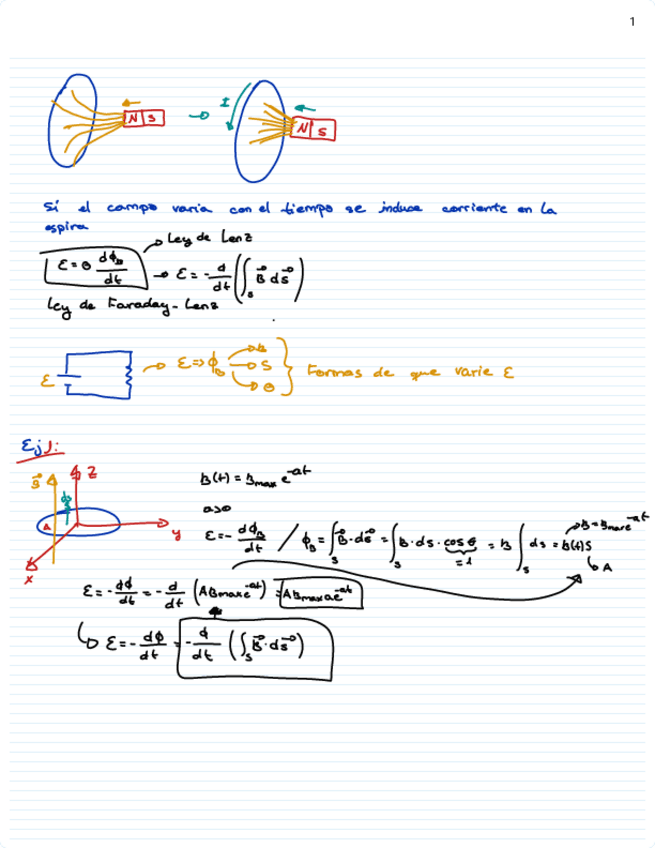 1
N S
I
N S
Si el campo varia con el tiempo se induce corriente en la
espira
Ley de Lenz
ε = ⊖ dϕB/dt → ε = - d/dt (∫s B⃗ ds⃗)
Ley de Faraday-Lenz
ε → ε ⇒ ϕB B S θ } Formas de que varie ε
Ej 1:
B⃗ Z
A
y
x
B(t) = Bmax e^-at
a>0
ε = - dϕB/dt / ϕB = ∫s B⃗·ds⃗ = ∫s B·ds·cos θ = B ∫s ds = B(t)S
= 1
B = Bmax e^-at
A
ε = - dϕ/dt = - d/dt (ABmax e^-at) = ABmax a e^-at
ε = - dϕ/dt = - d/dt (∫s B⃗·ds⃗)